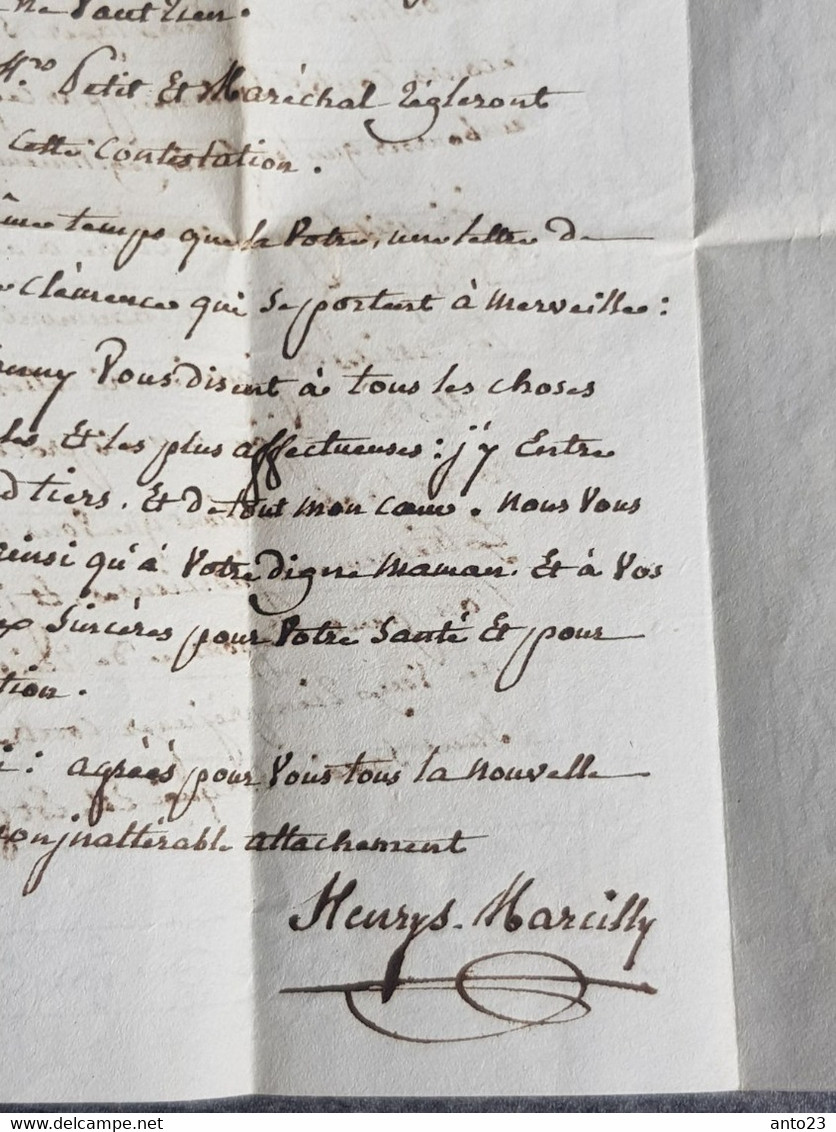 ne vaut rien.
Mrs Petit Et Maréchal règleront
cette Contestation.
ême temps que la Votre, une lettre de
Clémence qui se portent à merveille:
Vous disent à tous les choses
les Et les plus affectueuses: j'y Entre
tiers. Et de tout mon cœur. nous Vous
ainsi qu'à Votre digne Maman. Et à Vos
x Sincères pour Votre Santé Et pour
tion.
: agréés pour Vous tous la nouvelle
mon inaltérable attachement
Henrys-Marcilly
www.delcampe.net
anto23